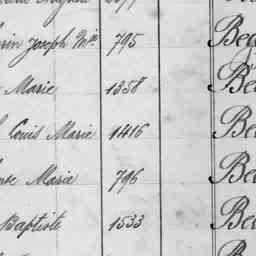 Joseph Mie 795 Be
Marie 1358 Be
Louis Marie 1416 Be
Marie 796 Be
Baptiste 1533 Be